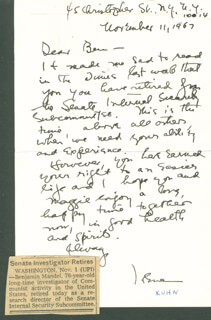 45 Christopher St. N.Y. N.Y.
10014
November 11, 1967
Dear Ben—
It made me sad to read
in the Times last week that
you have retired from
the Senate Internal Security
Subcommittee. This is the
time, above all others
when we need your ability
and experience.
However, you have earned
your right to an easier
life and I hope you and
Maggie enjoy a long,
happy time together
now, in good health
and spirits.
Always
Irene
KUHN
Senate Investigator Retires
WASHINGTON, Nov. 1 (UPI)
—Benjamin Mandel, 76-year-old
long-time investigator of Com-
munist activity in the United
States, retired today as a re-
search director of the Senate
Internal Security Subcommittee.